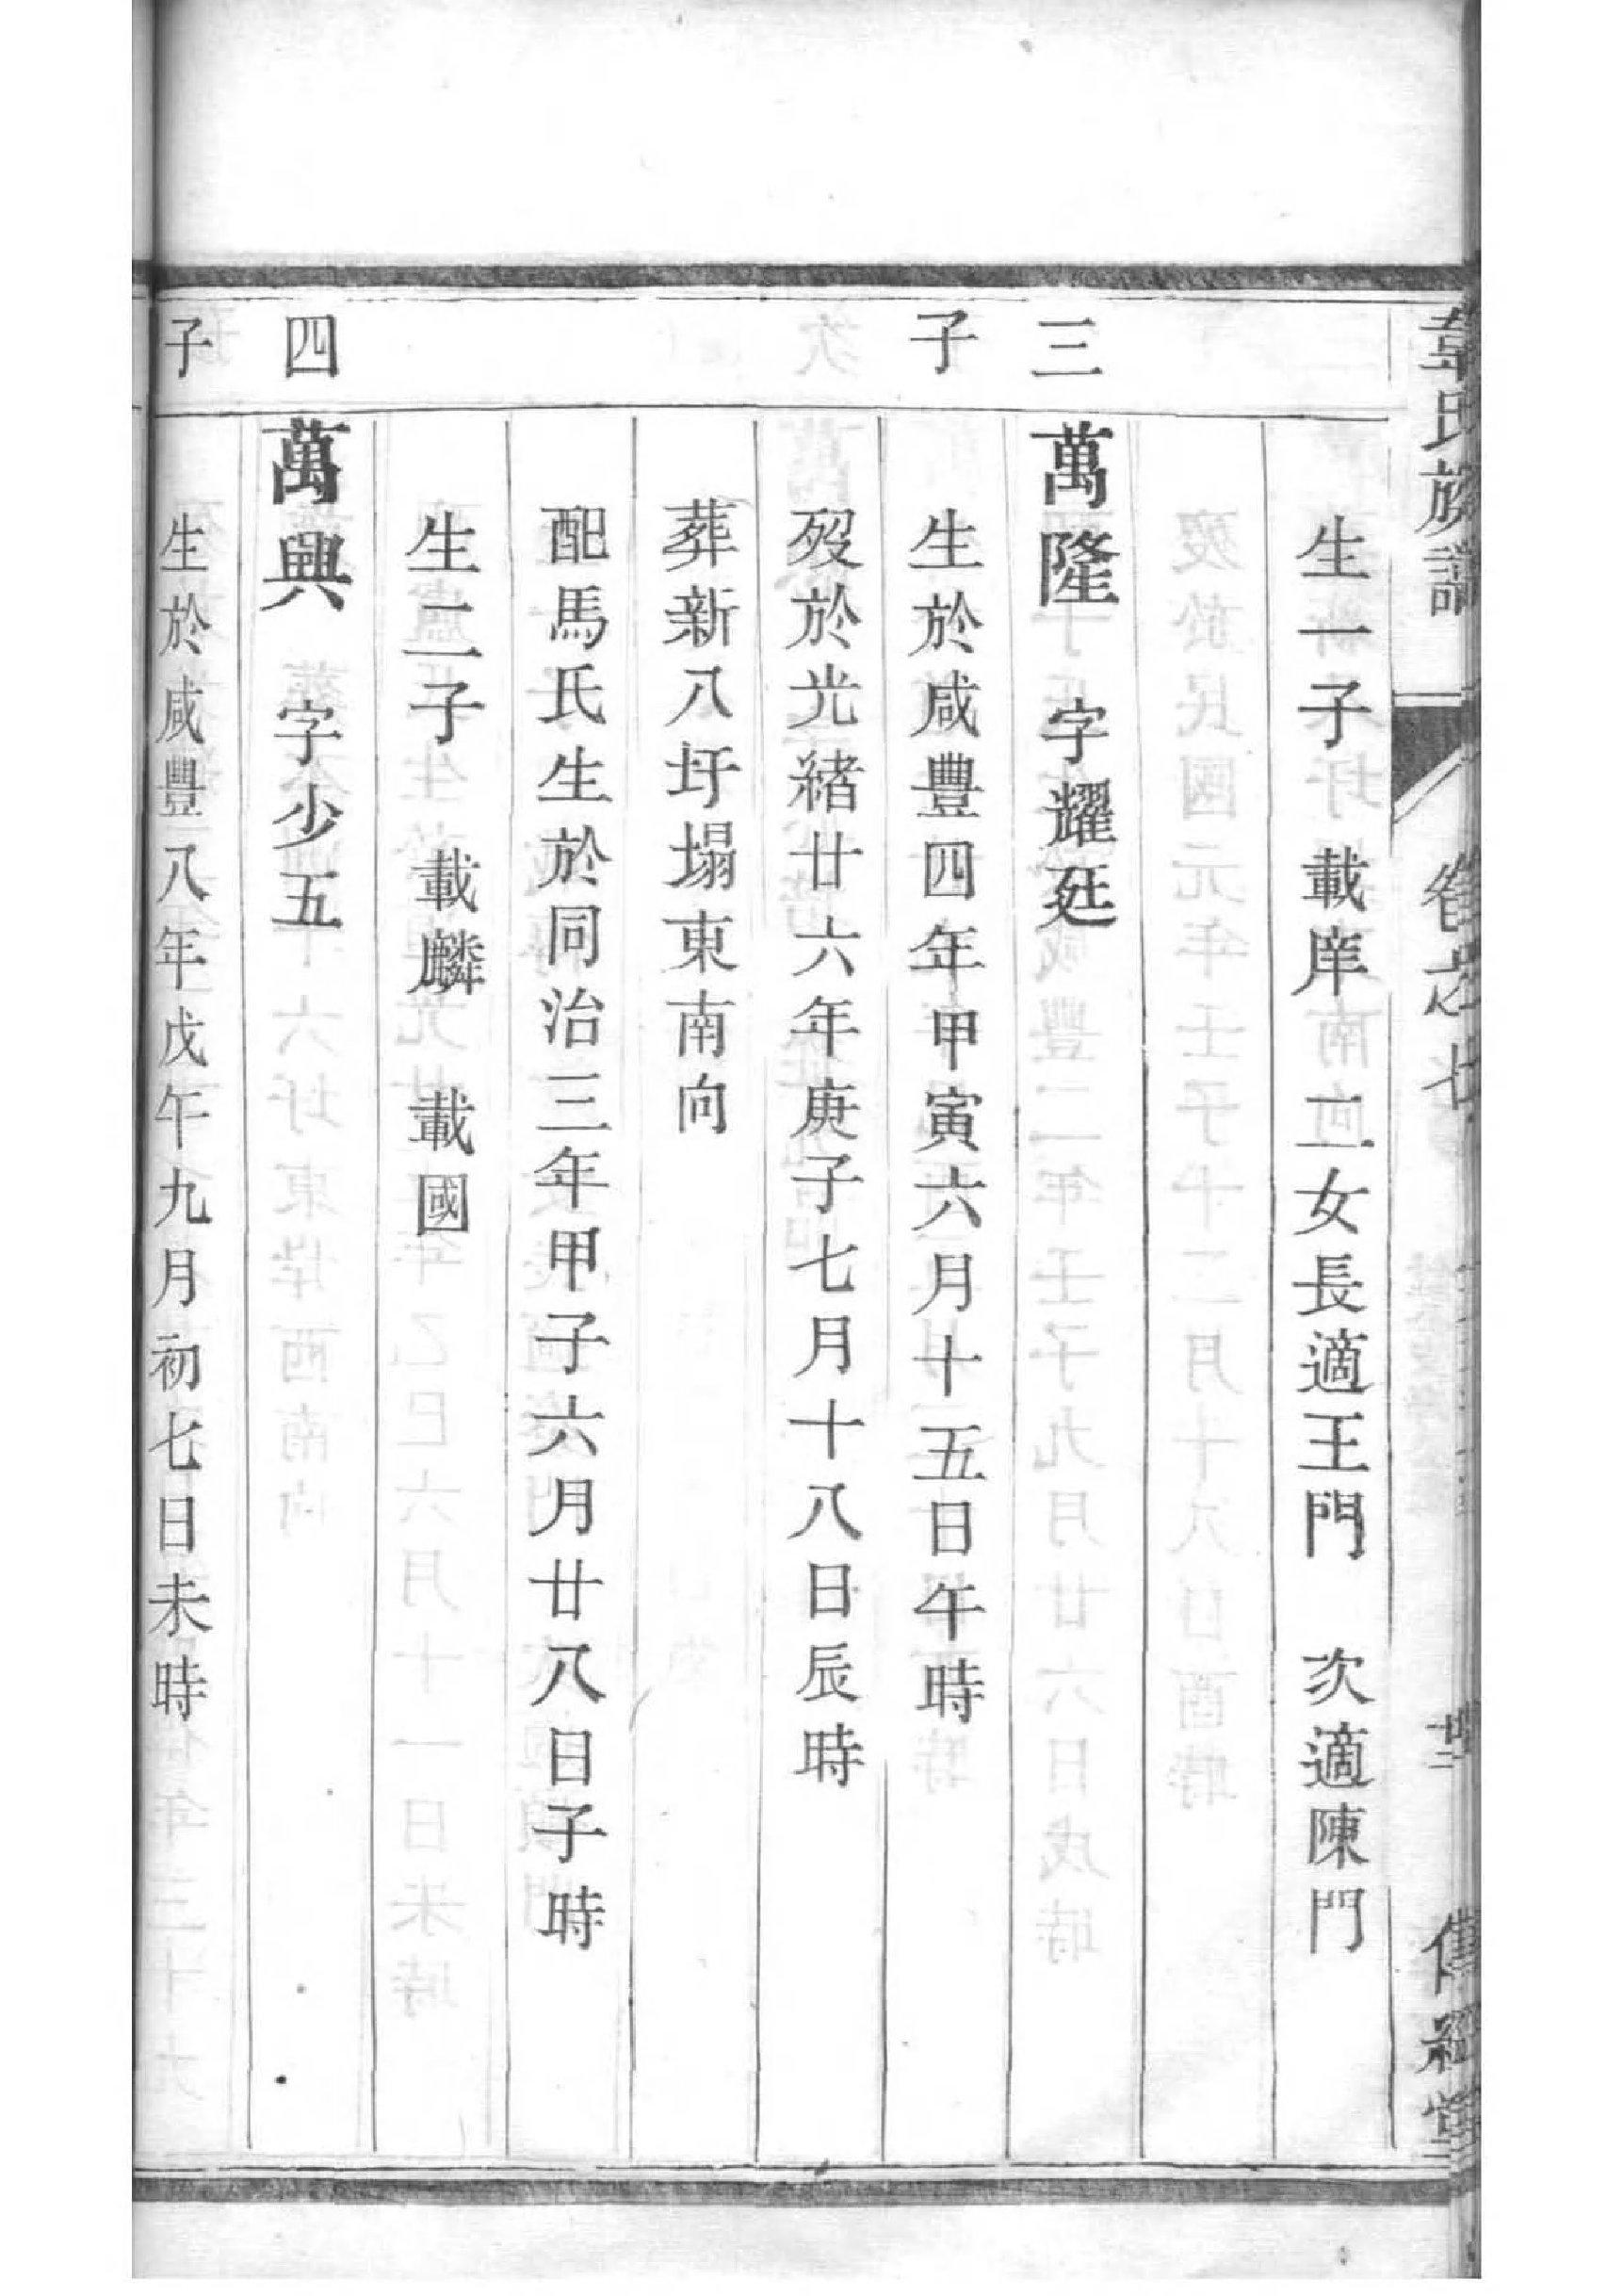 韋氏族譜 卷之七 廿二 傳經堂
生一子 載庠 二女長適王門 次適陳門
三子
萬隆 字耀廷
生於咸豐四年甲寅六月十五日午時
歿於光緒廿六年庚子七月十八日辰時
葬新八圩塌東南向
配馬氏生於同治三年甲子六月廿八日子時
生二子 載麟 載國
四子
萬興 字少五
生於咸豐八年戊午九月初七日未時